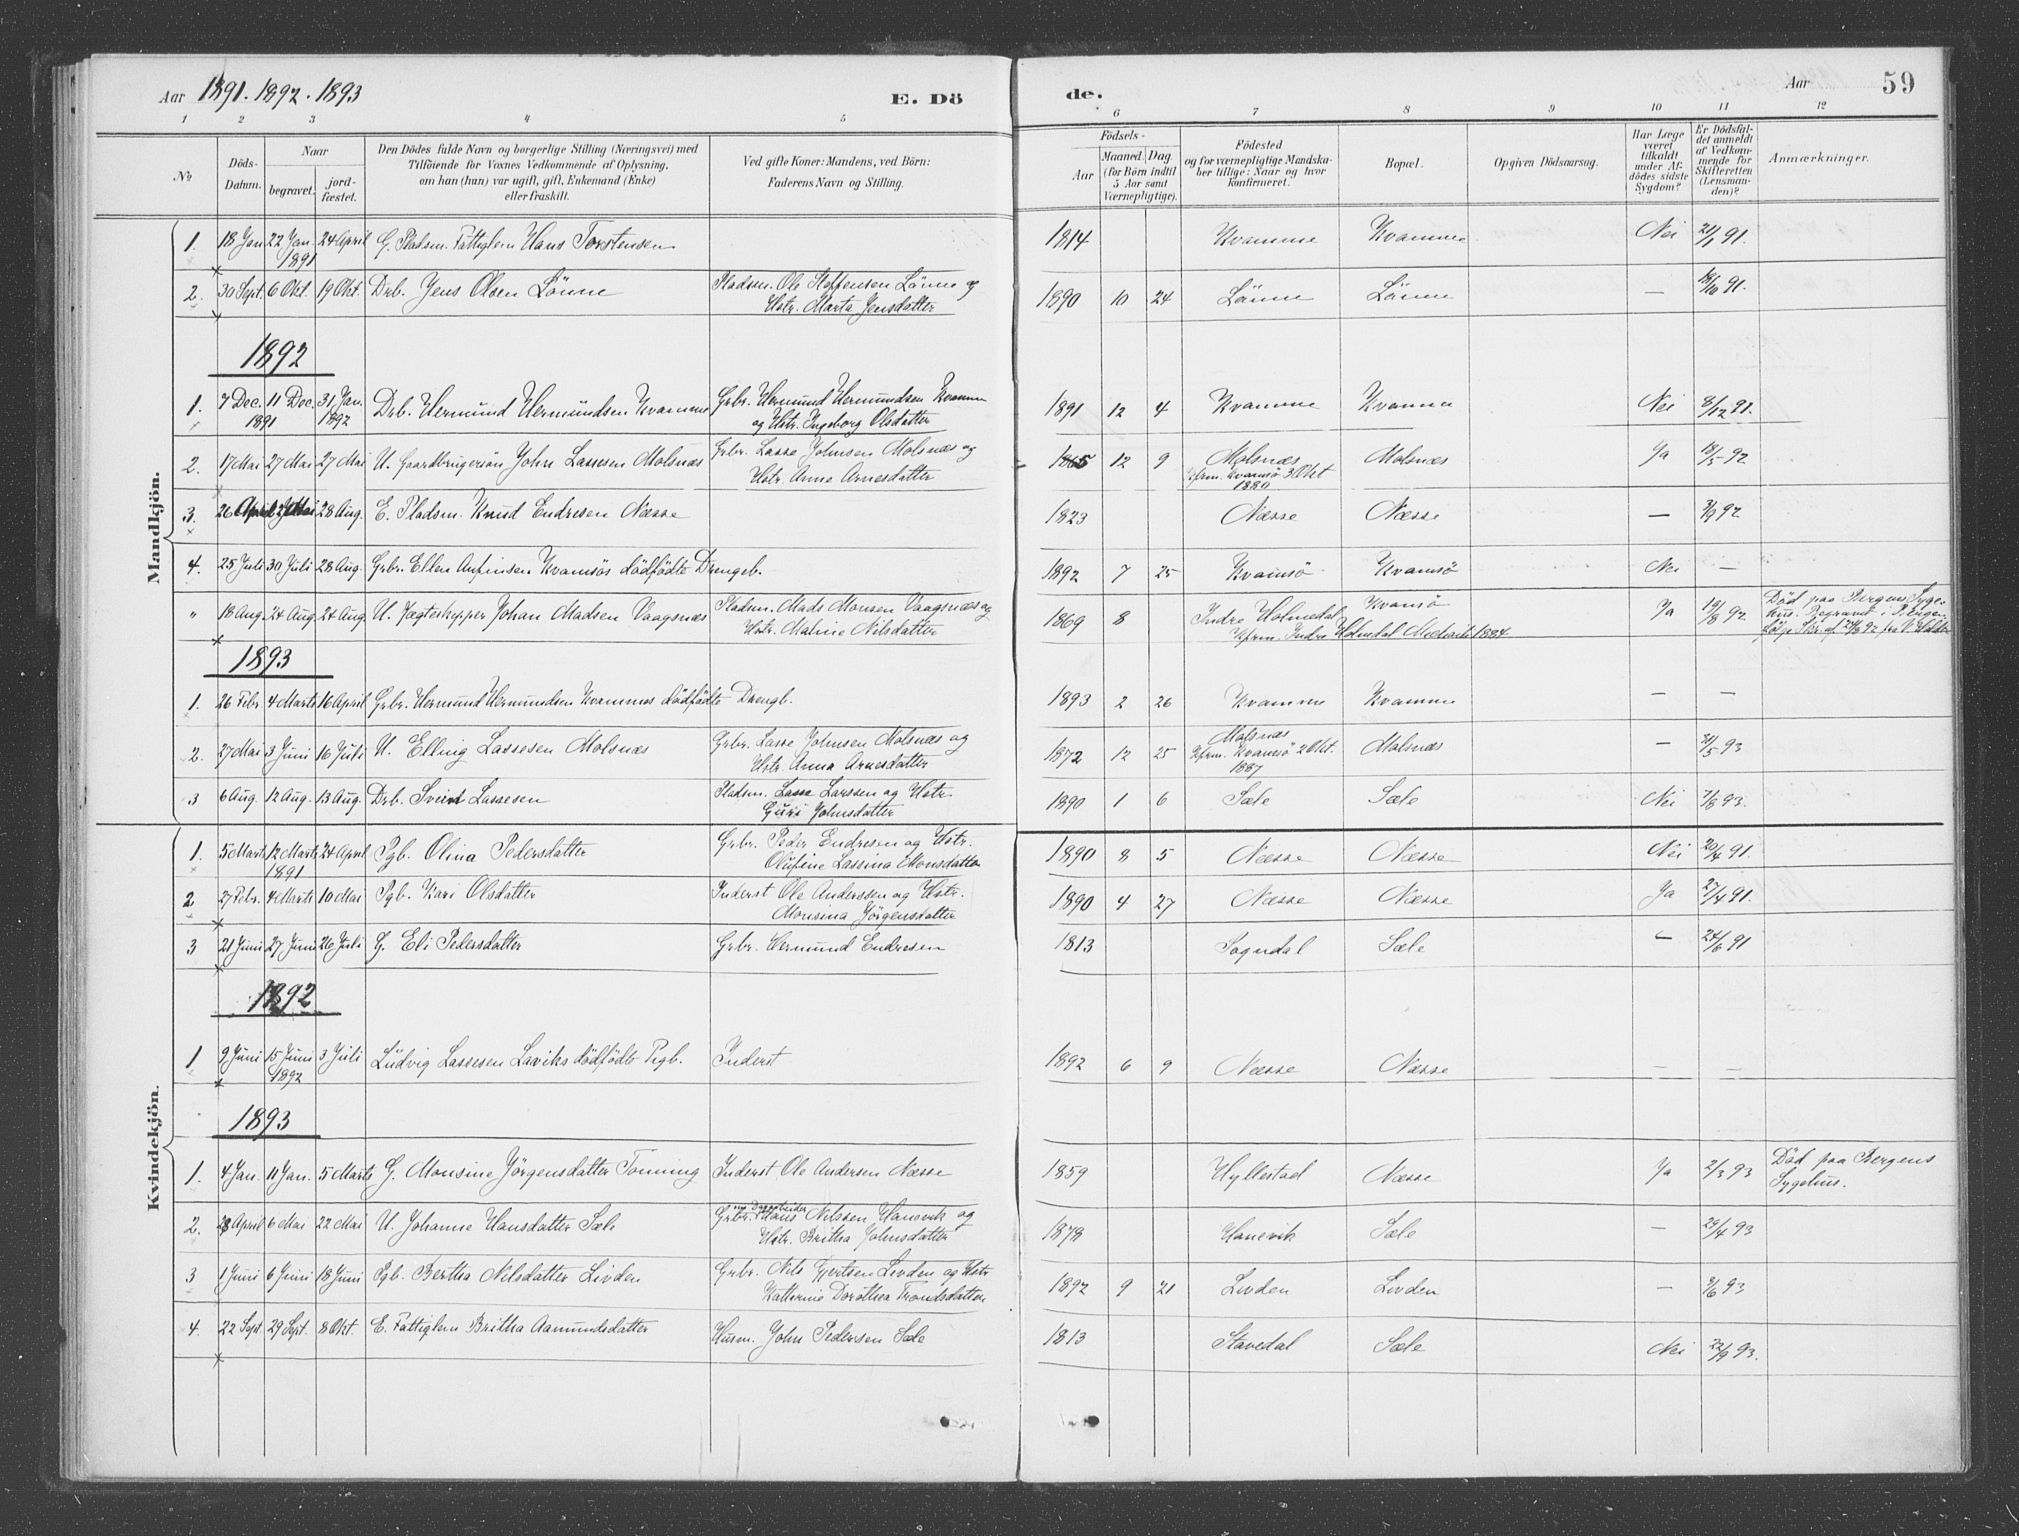 Aar 1891. 1892. 1893
E. Dö
de.
Aar
59
1 2 3 4 5 6 7 8 9 10 11 12
No
Döds-
Datum.
Naar
begravet.
jord-
fæstet.
Den Dödes fulde Navn og borgerlige Stilling (Næringsvei) med
Tilföiende for Voxnes Vedkommende af Oplysning,
om han (hun) var ugift, gift, Enkemand (Enke)
eller fraskilt.
Ved gifte Koner: Mandens, ved Börn:
Faderens Navn og Stilling.
Födsels-
Aar
Maaned.
Dag.
(for Börn indtil
5 Aar samt
Værnepligtige).
Födested
og for værnepligtige Mandska-
ber tillige: Naar og hvor
konfirmeret.
Bopæl.
Opgiven Dödsaarsag.
Har Læge
været
tilkaldt
under Af-
dödes sidste
Sygdom?
Er Dödsfal-
det anmeldt
af Vedkom-
mende for
Skifteretten
(Lensman-
den)?
Anmærkninger.
Mandkjön.
1. 18 Jan 22 Jan. 1891 24 April G. Pladsm. Fattiglem Hans Torstensen 1814 Kvamme Kvamme Nei 21/1 91.
2. 30 Sept. 6 Okt. 19 Okt. Drb. Jens Olsen Lönne Pladsm. Ole Steffensen Lönne og
Hstr. Marta Jensdatter 1890 10 24 Lönne Lönne — 18/10 91.
1892
1. 7 Dec. 1891 11 Dec. 31 Jan. 1892 Drb. Hermund Hermundsen Kvamme Grbr. Hermund Hermundsen Kvamm
og Hstr. Ingeborg Olsdatter 1891 12 4 Kvamme Kvamme Nei 8/12 91.
2. 17 Mai 27 Mai 27 Mai U. Gaardbrugersön John Lassesen Molsnæs Grbr. Lasse Johnsen Molsnæs og
Hstr. Anne Arnesdatter 1865 12 9 Molsnæs
Kfrm. Kvamsö 3 Okt
1880 Molsnæs Ja 18/5 92
3. 26 April Mai 28 Aug. E. Pladsm. Knud Endresen Næsse 1823 Næsse Næsse — 92
4. 25 Juli 30 Juli 28 Aug. Grbr. Ellen Anfinsen Kvamsös dödfödte Drengeb. 1892 7 25 Kvamsö Kvamsö Nei —
" 18 Aug. 24 Aug. 24 Aug. U. Jægteskipper Johan Madsen Vaagsnæs Pladsm. Mads Monsen Vaagsnæs og
Hstr. Maline Nilsdatter 1869 8 Indre Holmedal
Kfrm. Indre Holmedal 1884 Kvamsö Ja 19/8 92 Död paa Bergens Syge-
hus. Begravet i
1893
1. 26 Febr. 4 Marts 16 April Grbr. Hermund Hermundsen Kvammes dödfödte Drengb. 1893 2 26 Kvamme Kvamme — —
2. 27 Mai 3 Juni 16 Juli U. Elling Lassesen Molsnæs Grbr. Lasse Johnsen Molsnæs og
Hstr. Anna Arnesdatter 1872 12 25 Molsnæs
Kfrm. Kvamsö 2 Okt.
1887 Molsnæs — 31/5 93
3 6 Aug. 12 Aug. 13 Aug. Drb. Sveint Lassesen Pladsm. Lasse Larssen og Hstr.
Guri Johnsdatter 1890 1 6 Sæle Sæle Nei 7/8 93.
Kvindekjön.
1. 5 Marts 12 Marts 1891 24 April Pgb. Olina Pedersdatter Grbr. Peder Endresen og Hstr.
Olufine Lassina Monsdatter 1890 8 5 Næsse Næsse Nei 20/4 91.
2 27 Febr. 4 Marts 10 Mai Pgb. Kari Olsdatter Inderst Ole Anderssen og Hstr.
Monsina Jörgensdatter 1890 4 27 Næsse Næsse Ja 27/4 91.
3 21 Juni 27 Juni 26 Juli G. Eli Pedersdatter Grbr. Hermund Endresen 1813 Sogndal Sæle — 24/6 91
1892
1 9 Juni 15 Juni 1892 3 Juli Ludvig Lassesen Laviks dödfödte Pigb. Inderst 1892 6 9 Næsse Næsse — —
1893
1. 4 Jan. 11 Jan. 5 Marts G. Monsine Jörgensdatter Tonning Inderst Ole Andersen Næsse 1859 Hyllestad Næsse Ja 2/3 93 Död paa Bergens
Sygehus.
2. 28 April 6 Mai 22 Mai U. Johanne Hansdatter Sæle Grbr. Hans Nilssen Hanevik og
Hstr. Britha Johnsdatter 1878 Hanevik Sæle — 29/4 93
3 1 Juni 6 Juni 18 Juni Pgb. Bertha Nilsdatter Livden Grbr. Nils Gjertsen Livden og Hstr
Katherine Dorothea Trondsdatter 1892 9 21 Livden Livden — 93
4. 22 Sept. 29 Sept. 8 Okt. E. Fattiglem Britha Aamundsdatter Husm. John Pedersen Sæle 1813 Stavedal Sæle Nei 22/9 93.